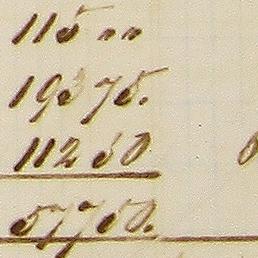 115 〃〃
193 75.
112 50.
577 50.